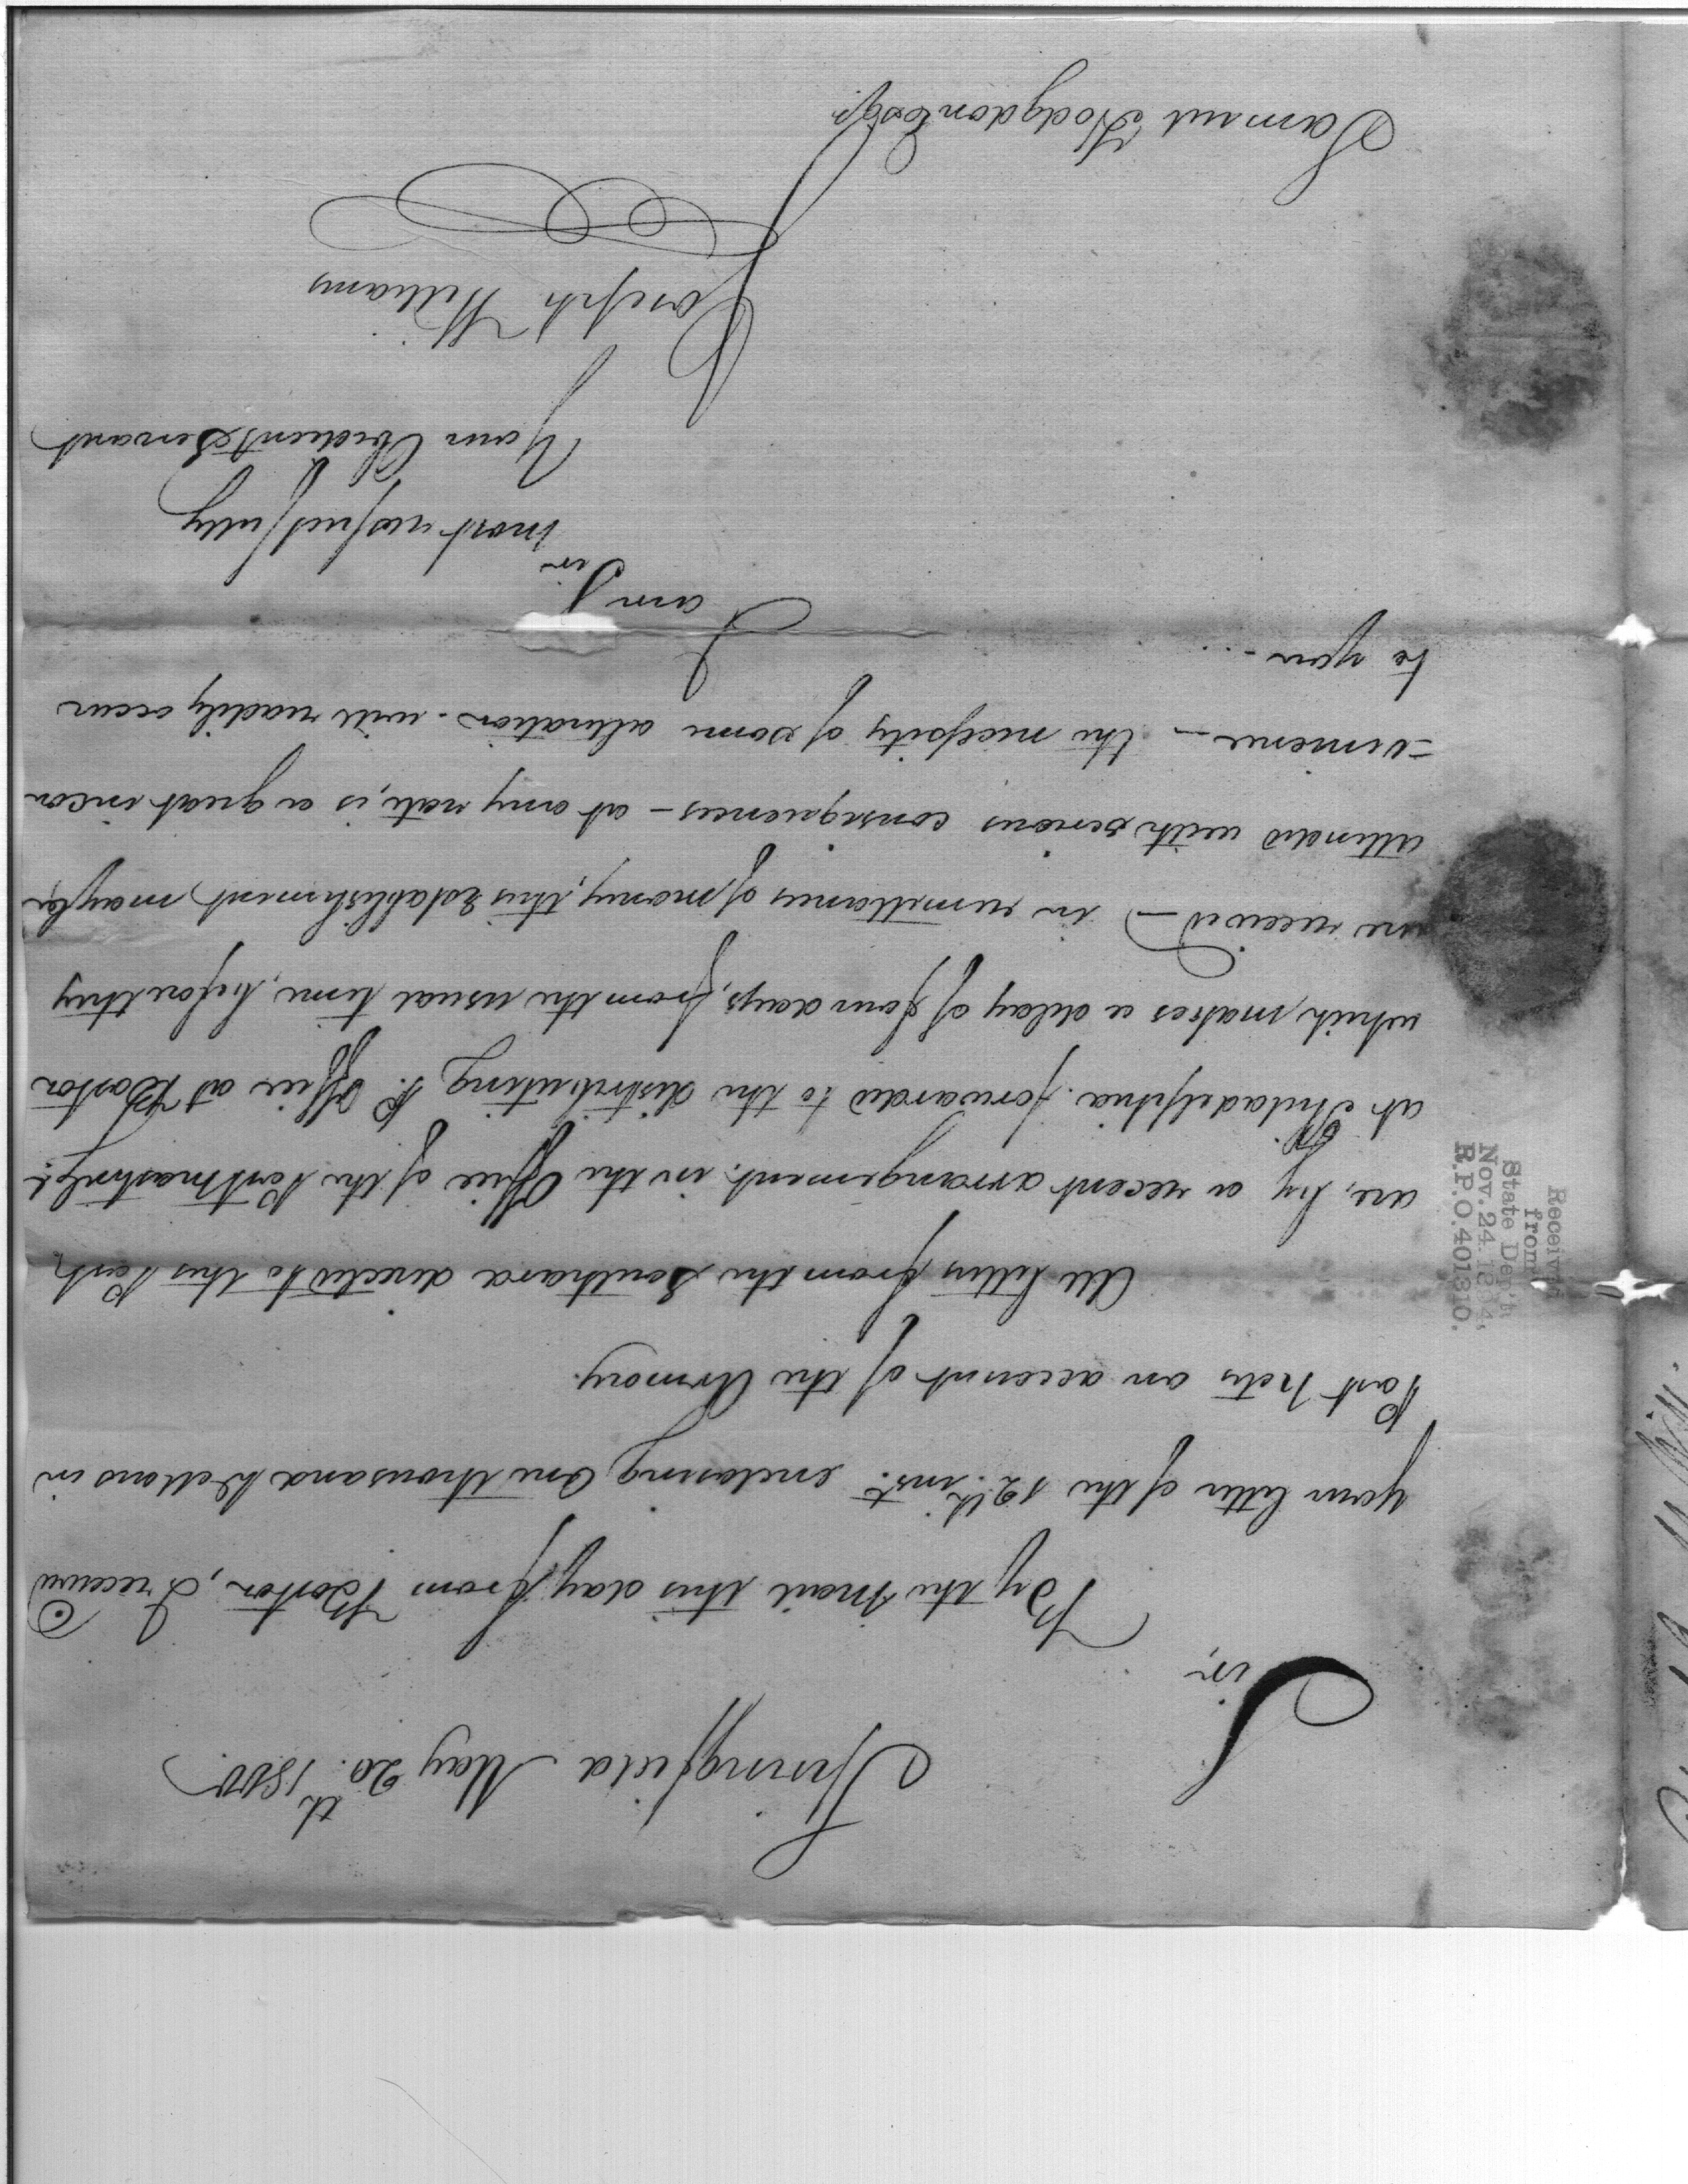 Springfield May 20th. 1800.
Sir,
By the Mail this day from Boston, I received
your letter of the 12th. inst. enclosing One thousand Dollars in
Post Notes on account of the Armory.
All letters from the Southard directed to this Post,
are, by a recent arrangement, in the Office of the Postmaster Gl.
at Philadelphia. forwarded to the distributing P. Office at Boston
which, makes a delay of four days, from the usual time, before they
are received — in remittances of money, this Establishment may be
attended with serious consequences — at any rate, is a great incon
=venience — the necessity of some alteration — will readily occur
to you — ...
I am Sir
most respectfully
Your Obedient Servant
Joseph Williams
Samuel Hodgdon Esqr.
Received
from
State Dep't
Nov. 24, 1894,
R.P.O. 401310.